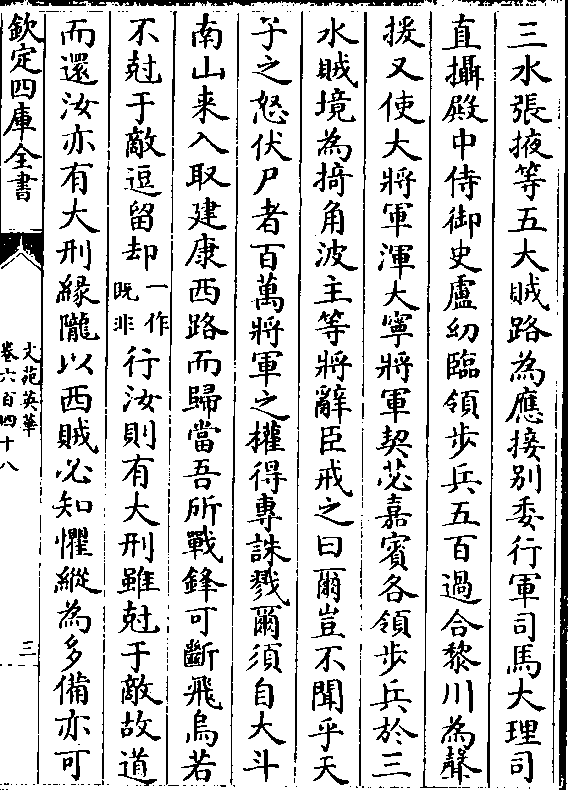 三水張掖等五大賊路為應接别委行軍司馬大理司
直攝殿中侍御史盧幼臨領步兵五百過合黎川為聲
援又使大將軍渾大寧將軍契苾嘉賓各領步兵於三
水賊境為掎角波主等將辭臣戒之曰爾豈不聞乎天
子之怒伏尸者百萬將軍之權得專誅戮爾須自大斗
南山来入取建康西路而歸當吾所戰鋒可斷飛鳥若
不尅于敵逗留却一作既非行汝則有大刑雖尅于敵故道
而還汝亦有大刑緣隴以西賊必知懼縱為多備亦可
欽定四庫全書
文苑英華
卷六百四十八
三